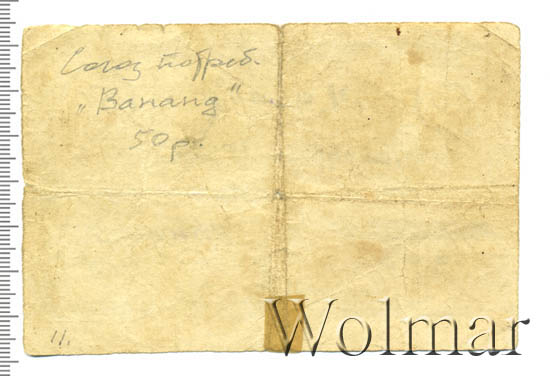 Союз потреб.
„Вананд"
50 р.
11.
Wolmar